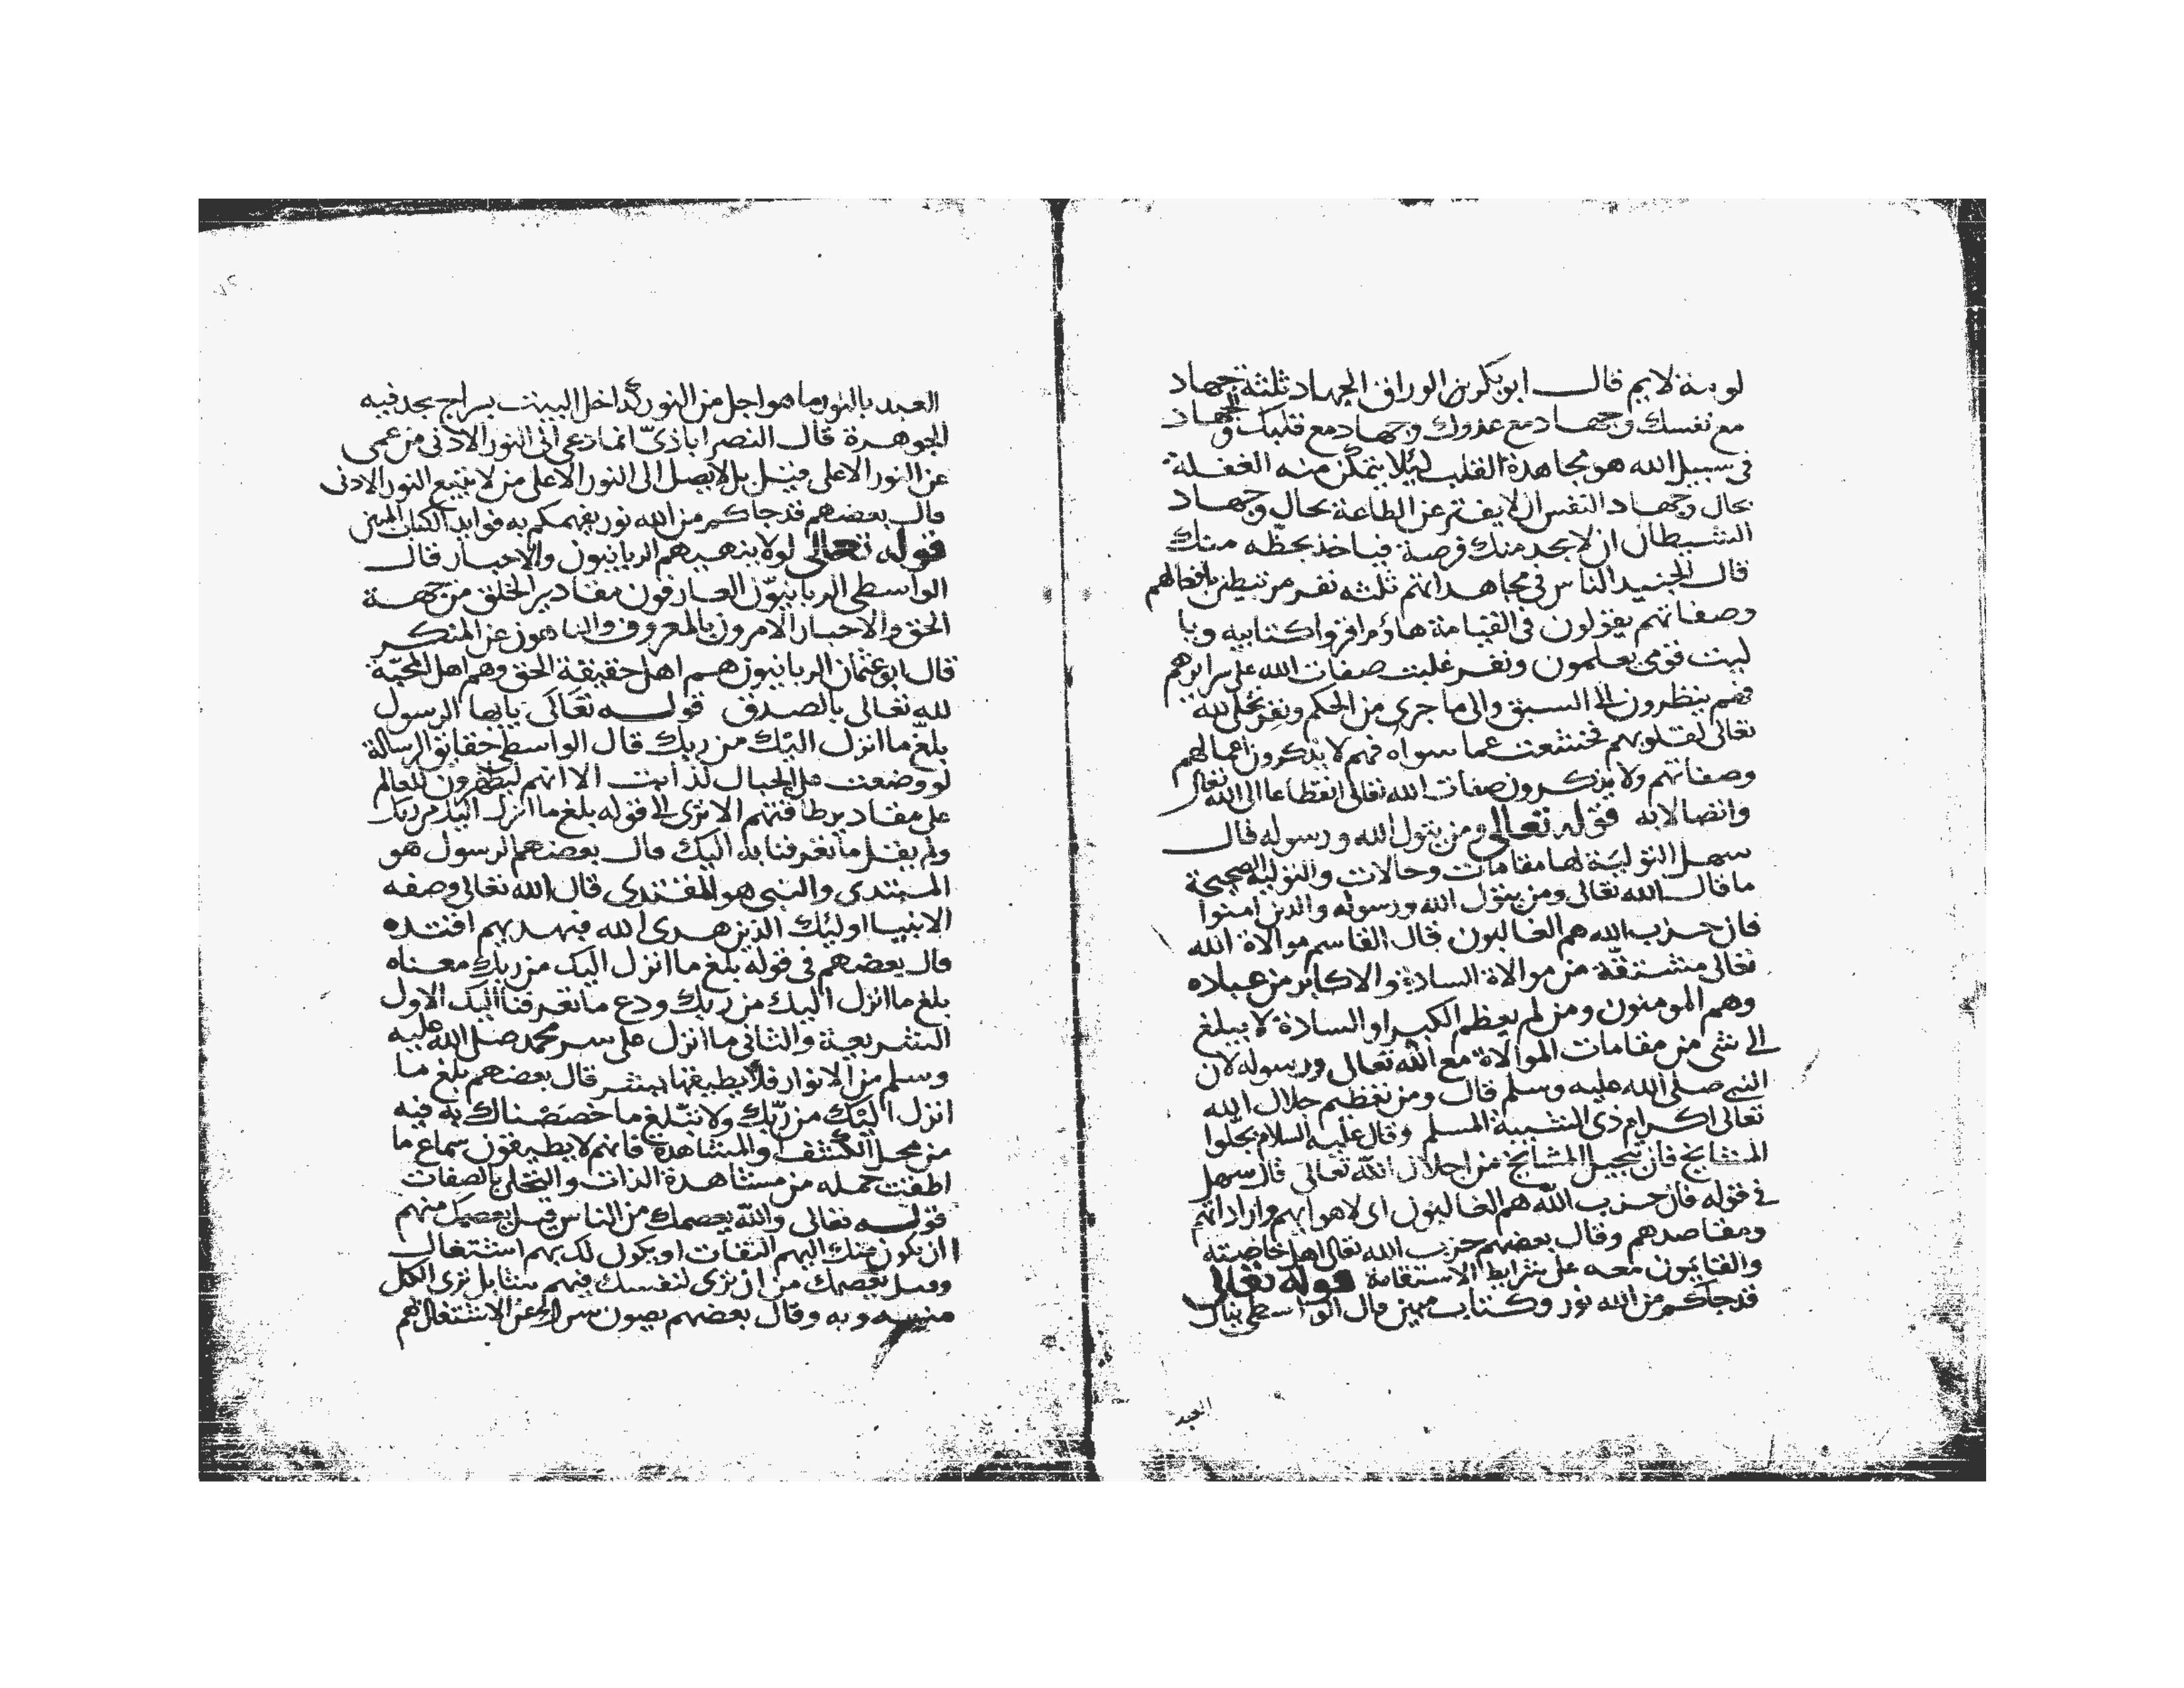 لومة لايم قال ابو بكر بن الوراق الجهاد ثلثة جهاد
مع نفسك وجهاد مع عدوك وجهاد مع قلبك والجهاد
فى سبيل الله هو مجاهدة القلب ليلا يتمكن منه الغفلة
بحال وجهاد النفس ان لا يفتر عن الطاعة بحال وجهاد
الشيطان ان لا يجد منك فرصة فياخذ بحظه منك
قال الجنيد الناس فى مجاهداتهم ثلثه نفر مرتبطين بافعالهم
وصفاتهم يقولون فى القيامة هاؤم اقرواكتابيه ويا
ليت قومى يعلمون ونفر غلبت صفات الله على سرايرهم
فهم ينظرون الى السبق والى ما جرى من الحكم ونفر تجلى الله
تعالى لقلوبهم فخشعت عما سواه فهم لا يذكرون اعمالهم
وصفاتهم ولا يذكرون صفات الله تعالى انقطاعا الى الله تعالى
واتصالا به قوله تعالى ومن يتول الله ورسوله قال
سهل التولية لها مقامات وحالات والتولية الصحيحة
ما قال الله تعالى ومن يتول الله ورسوله والذين امنوا
فان حزب الله هم الغالبون قال القاسم موالاة الله
تعالى مشتقة من موالاة السادة والاكابر من عباده
وهم المومنون ومن لم يعظم الكبرا والسادة لا يبلغ
الى شى من مقامات الموالاة مع الله تعالى ورسوله لان
النبى صلى الله عليه وسلم قال ومن تعظيم جلال الله
تعالى اكرام ذى الشيبة المسلم وقال عليه السلام بجلوا
المشايخ فان تبجيل المشايخ من اجلال الله تعالى قال سهل
فى قوله فان حزب الله هم الغالبون اى لاهوايهم واراداتهم
ومقاصدهم وقال بعضهم حزب الله تعالى اهل خاصته
والقايمون معه على شرايط الاستقامة قوله تعالى
قد جاكم من الله نور وكتاب مبين قال الواسطى ينال
العبد
العبد بالنور ما هو اجل من النور كداخل البيت بسراج يجد فيه
الجوهرة قال النصراباذى انما دعى الى النور الادنى من عمى
عن النور الاعلى فيتل بل لا يصل الى النور الاعلى من لا يتبع النور الادنى
قال بعضهم قد جاكم من الله نور يفهمكم به فوايد الكتاب المبين
قوله تعالى لولا ينهيهم الربانيون والاحبار قال
الواسطى الربانيون العارفون مقادير الخلق من جهة
الحق والاحبار الامرون بالمعروف والناهون عن المنكر
قال ابو عثمان الربانيون هم اهل حقيقة الحق وهم اهل المحبة
لله تعالى بالصدق قوله تعالى يايها الرسول
بلغ ما انزل اليك من ربك قال الواسطى حقايق الرسالة
لو وضعت على الجبال لذابت الا انهم ليظهرون للعالم
على مقادير طاقتهم الا ترى الى قوله بلغ ما انزل اليك من ربك
ولم يقل ما تعرفنا به اليك قال بعضهم الرسول هو
المبتدى والنبى هو المقتدى قال الله تعالى وصفه
الانبيا اوليك الذين هدى الله فبهديهم اقتده
قال بعضهم فى قوله بلغ ما انزل اليك من ربك معناه
بلغ ما انزل اليك من ربك ودع ما تعرفنا اليك الاول
الشريعة والثانى ما انزل على سر محمد صلى الله عليه
وسلم من الانوار فلا يطيقها بشر قال بعضهم بلغ ما
انزل اليك من ربك ولا تبلغ ما خصصناك به فيه
من محل الكشف والمشاهدة فانهم لا يطيقون سماع ما
اطقت حمله من مشاهدة الذات والتجلى بالصفات
قوله تعالى والله يعصمك من الناس قيل يعصمك منهم
ان يكون منك اليهم التفات او يكون لك بهم اشتغال
وقيل يعصمك من ان ترى لنفسك فيهم شيا بل ترى الكل
منه وبه وقال بعضهم يصون سرك عن الاشتغال بهم